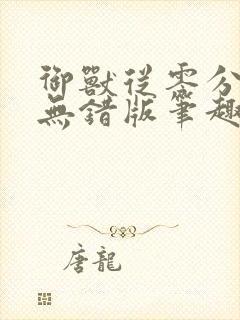 御獸從零分
無錯版筆趣
唐龍